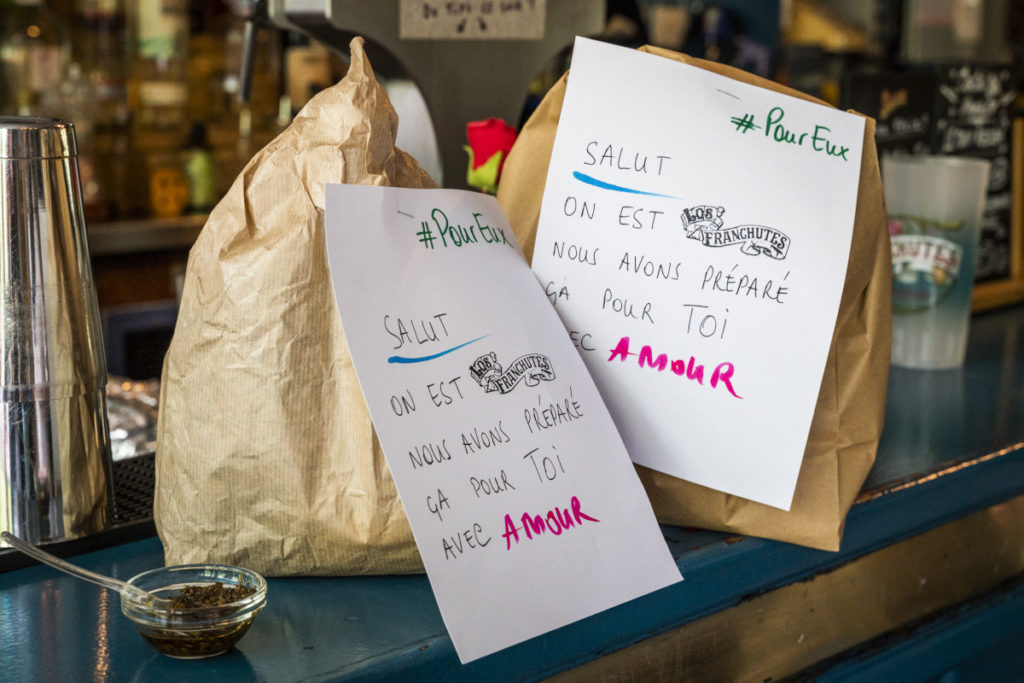 #PourEux
SALUT
ON EST LOS FRANCHUTES
NOUS AVONS PRÉPARÉ
ÇA POUR TOI
AVEC AMOUR
#PourEux
SALUT
ON EST LOS FRANCHUTES
NOUS AVONS PRÉPARÉ
ÇA POUR TOI
EC AMOUR